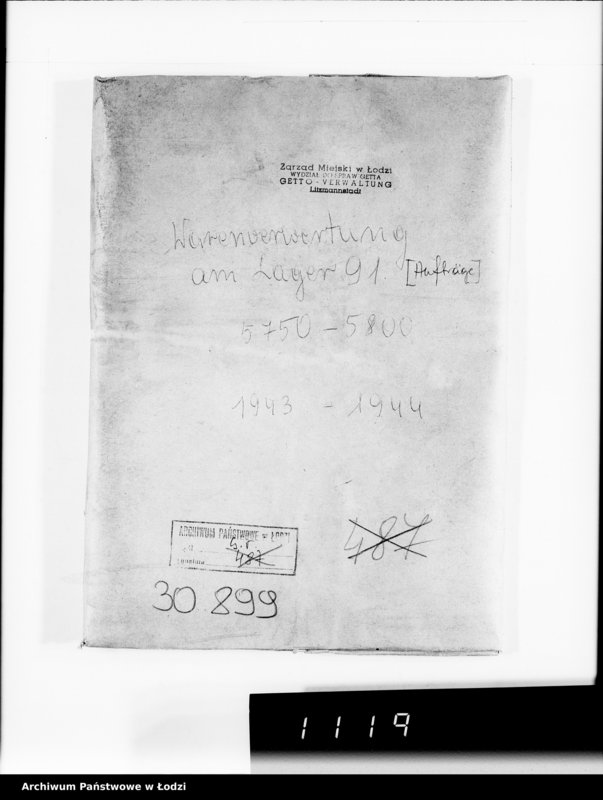 Zarząd Miejski w Łodzi
WYDZIAŁ DLA SPRAW GETTA
GETTO-VERWALTUNG
Litzmannstadt
Warenverwertung
am Lager 91. [Aufträge]
5750 - 5800
1943 - 1944
ARCHIWUM PAŃSTWOWE w ŁODZI
487
487
30.899
1119
Archiwum Państwowe w Łodzi